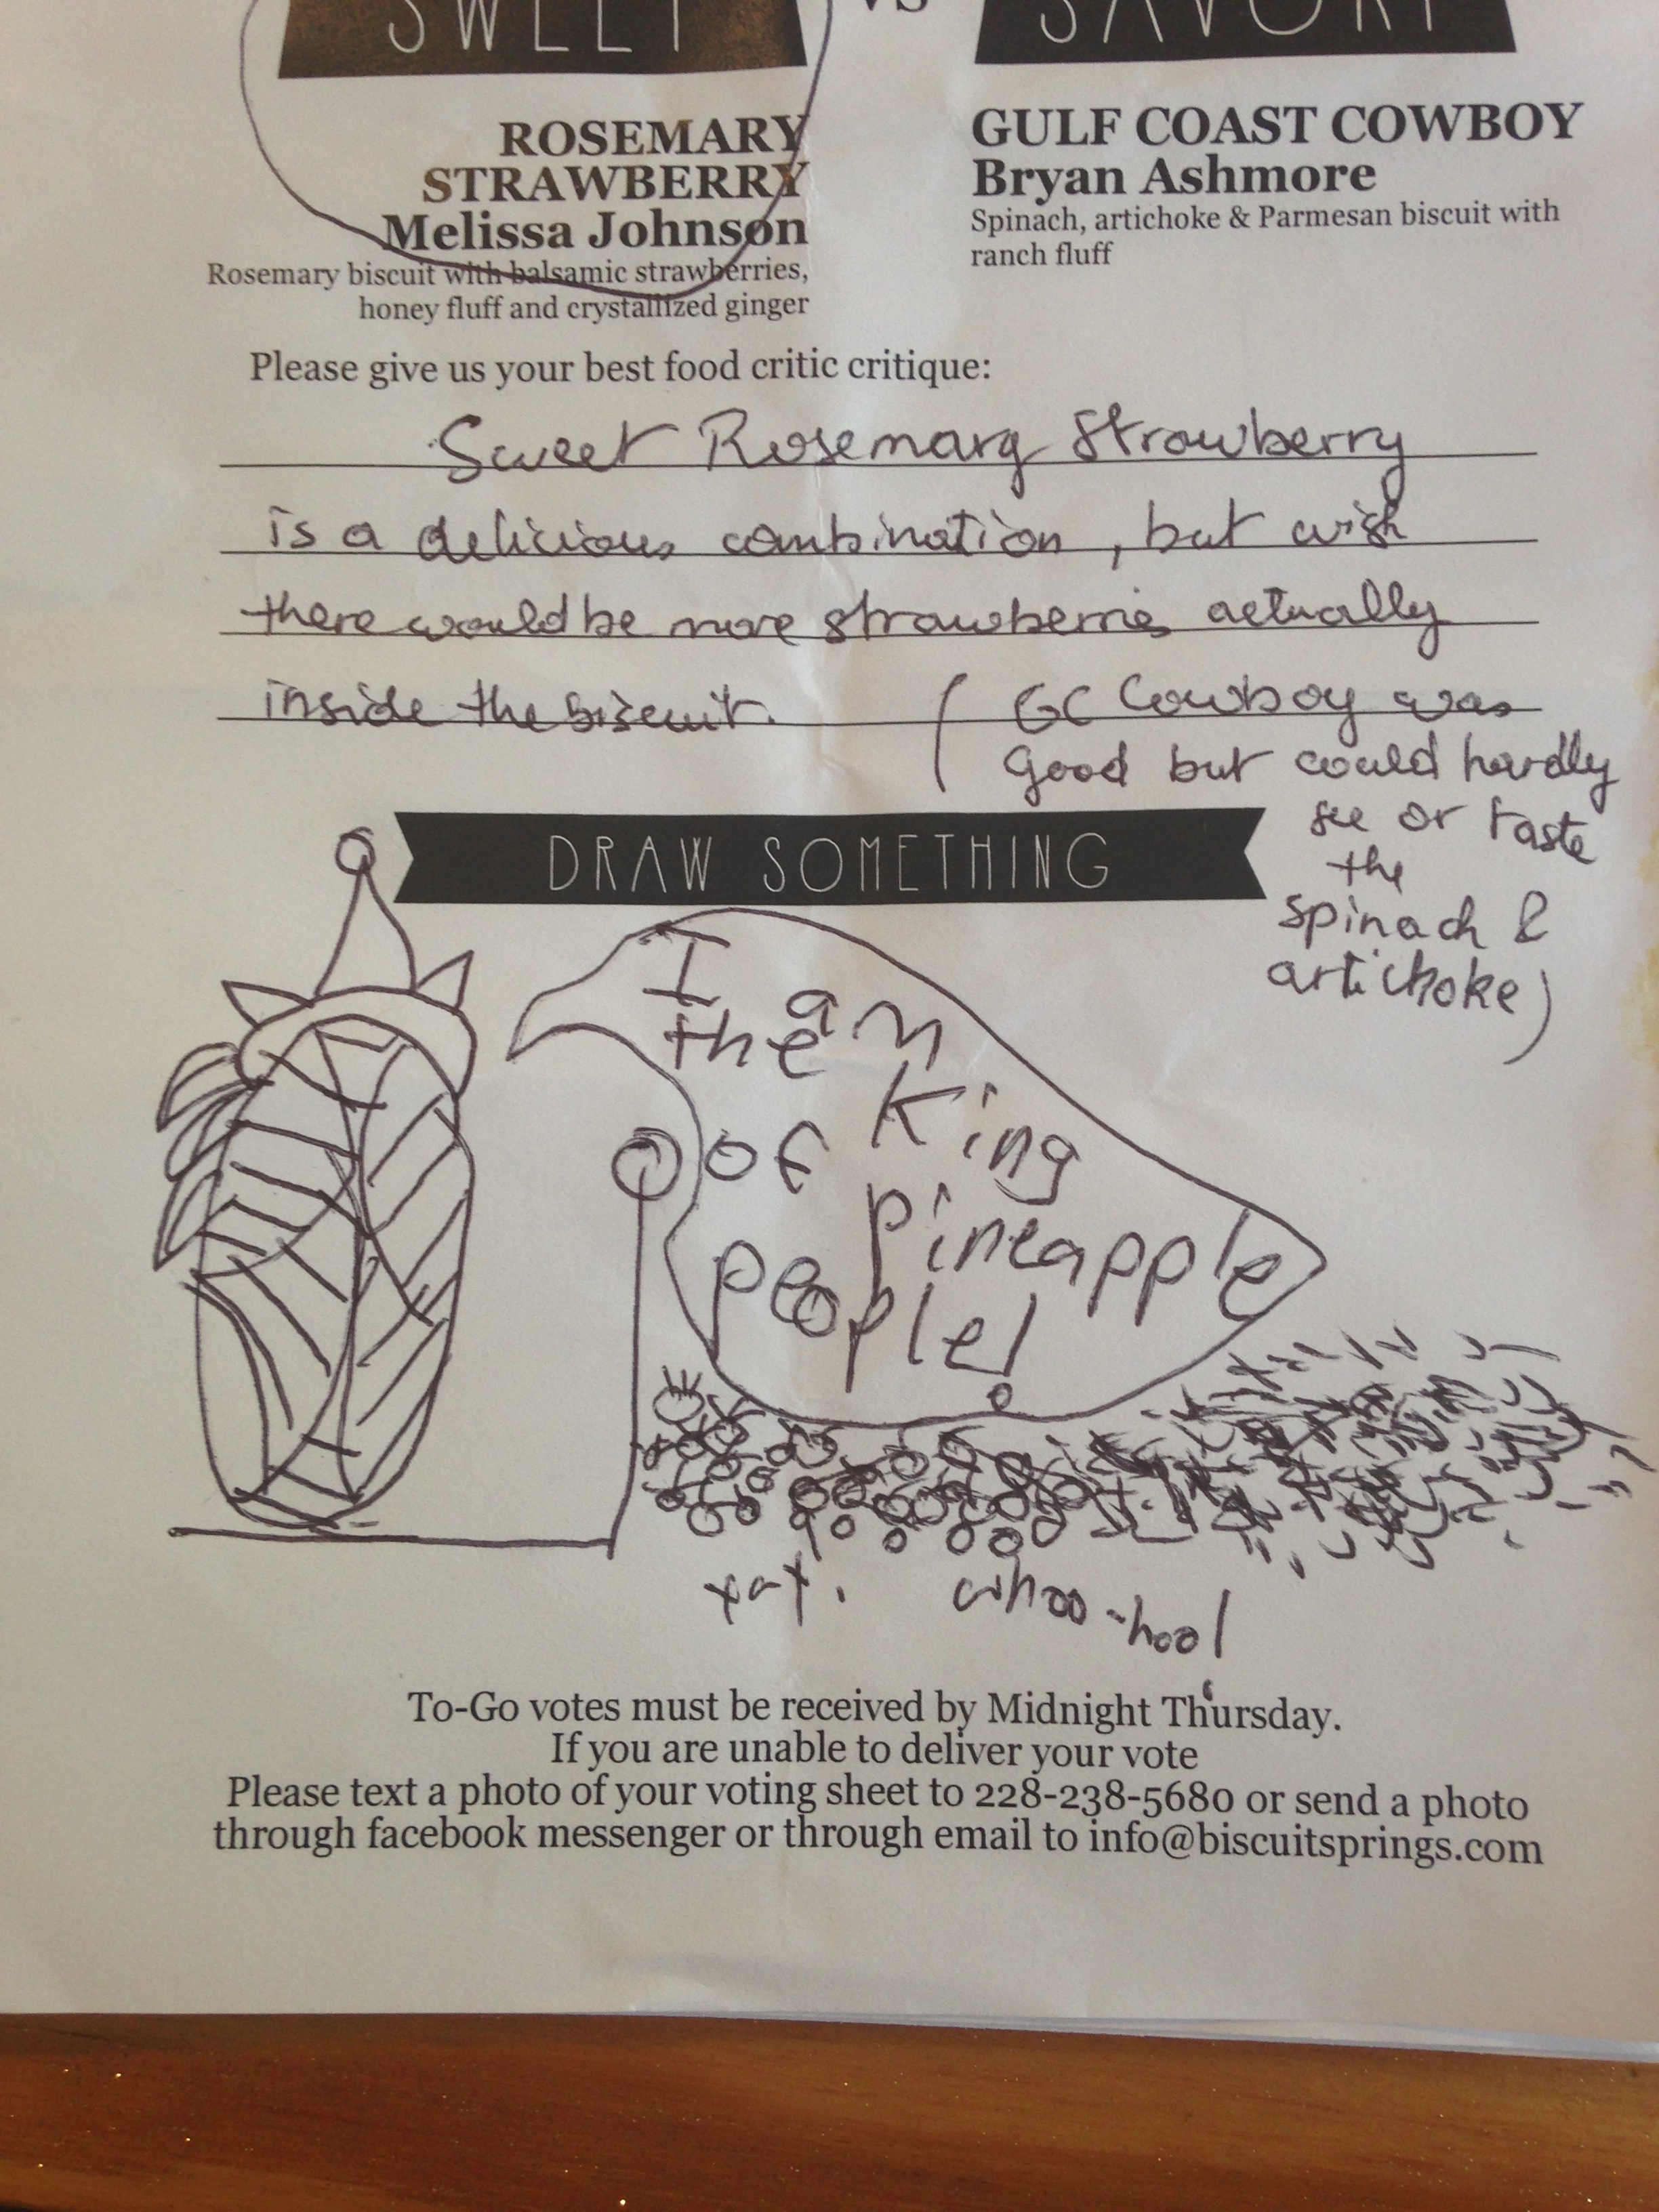 SWEET VS SAVORY
ROSEMARY
STRAWBERRY
Melissa Johnson
Rosemary biscuit with balsamic strawberries,
honey fluff and crystallized ginger
GULF COAST COWBOY
Bryan Ashmore
Spinach, artichoke & Parmesan biscuit with
ranch fluff
Please give us your best food critic critique:
Sweet Rosemary Strawberry
is a delicious combination, but wish
there would be more strawberries actually
inside the biscuit.
(GC Cowboy was
good but could hardly
see or taste
the
spinach &
artichoke)
DRAW SOMETHING
I am
the
King
of
pineapple
people!
yay. whoo-hoo!
To-Go votes must be received by Midnight Thursday.
If you are unable to deliver your vote
Please text a photo of your voting sheet to 228-238-5680 or send a photo
through facebook messenger or through email to info@biscuitsprings.com